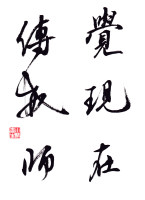 覺現在
傳承師